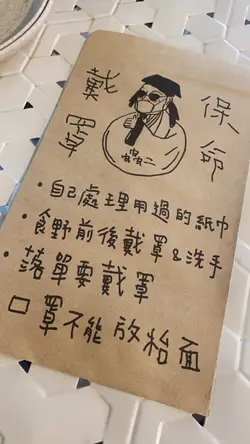 戴罩
保命
• 自己處理用過的紙巾
• 食野前後戴罩&洗手
• 落單要戴罩
口罩不能放枱面